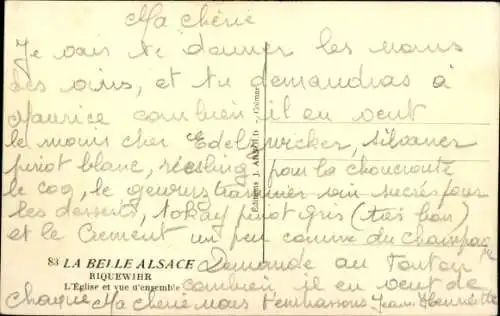 Ma chérie
Je vais te donner les noms
des vins, et tu demandras à
Maurice combien il en veut
le moins cher Edelzwicker, silvaner
pinot blanc, riesling pour la choucroute
le coq, le gewurstraminer vin sucrés pour
les desserts, tokay pinot gris (très bon)
et le Crement un peu comme du champagne
83 LA BELLE ALSACE
RIQUEWIHR
L'Église et vue d'ensemble
Demande au Tonton
combien il en veut de
chaque Ma chérie nous t'embrassons Jean Henriette
Editions J. - Colmar